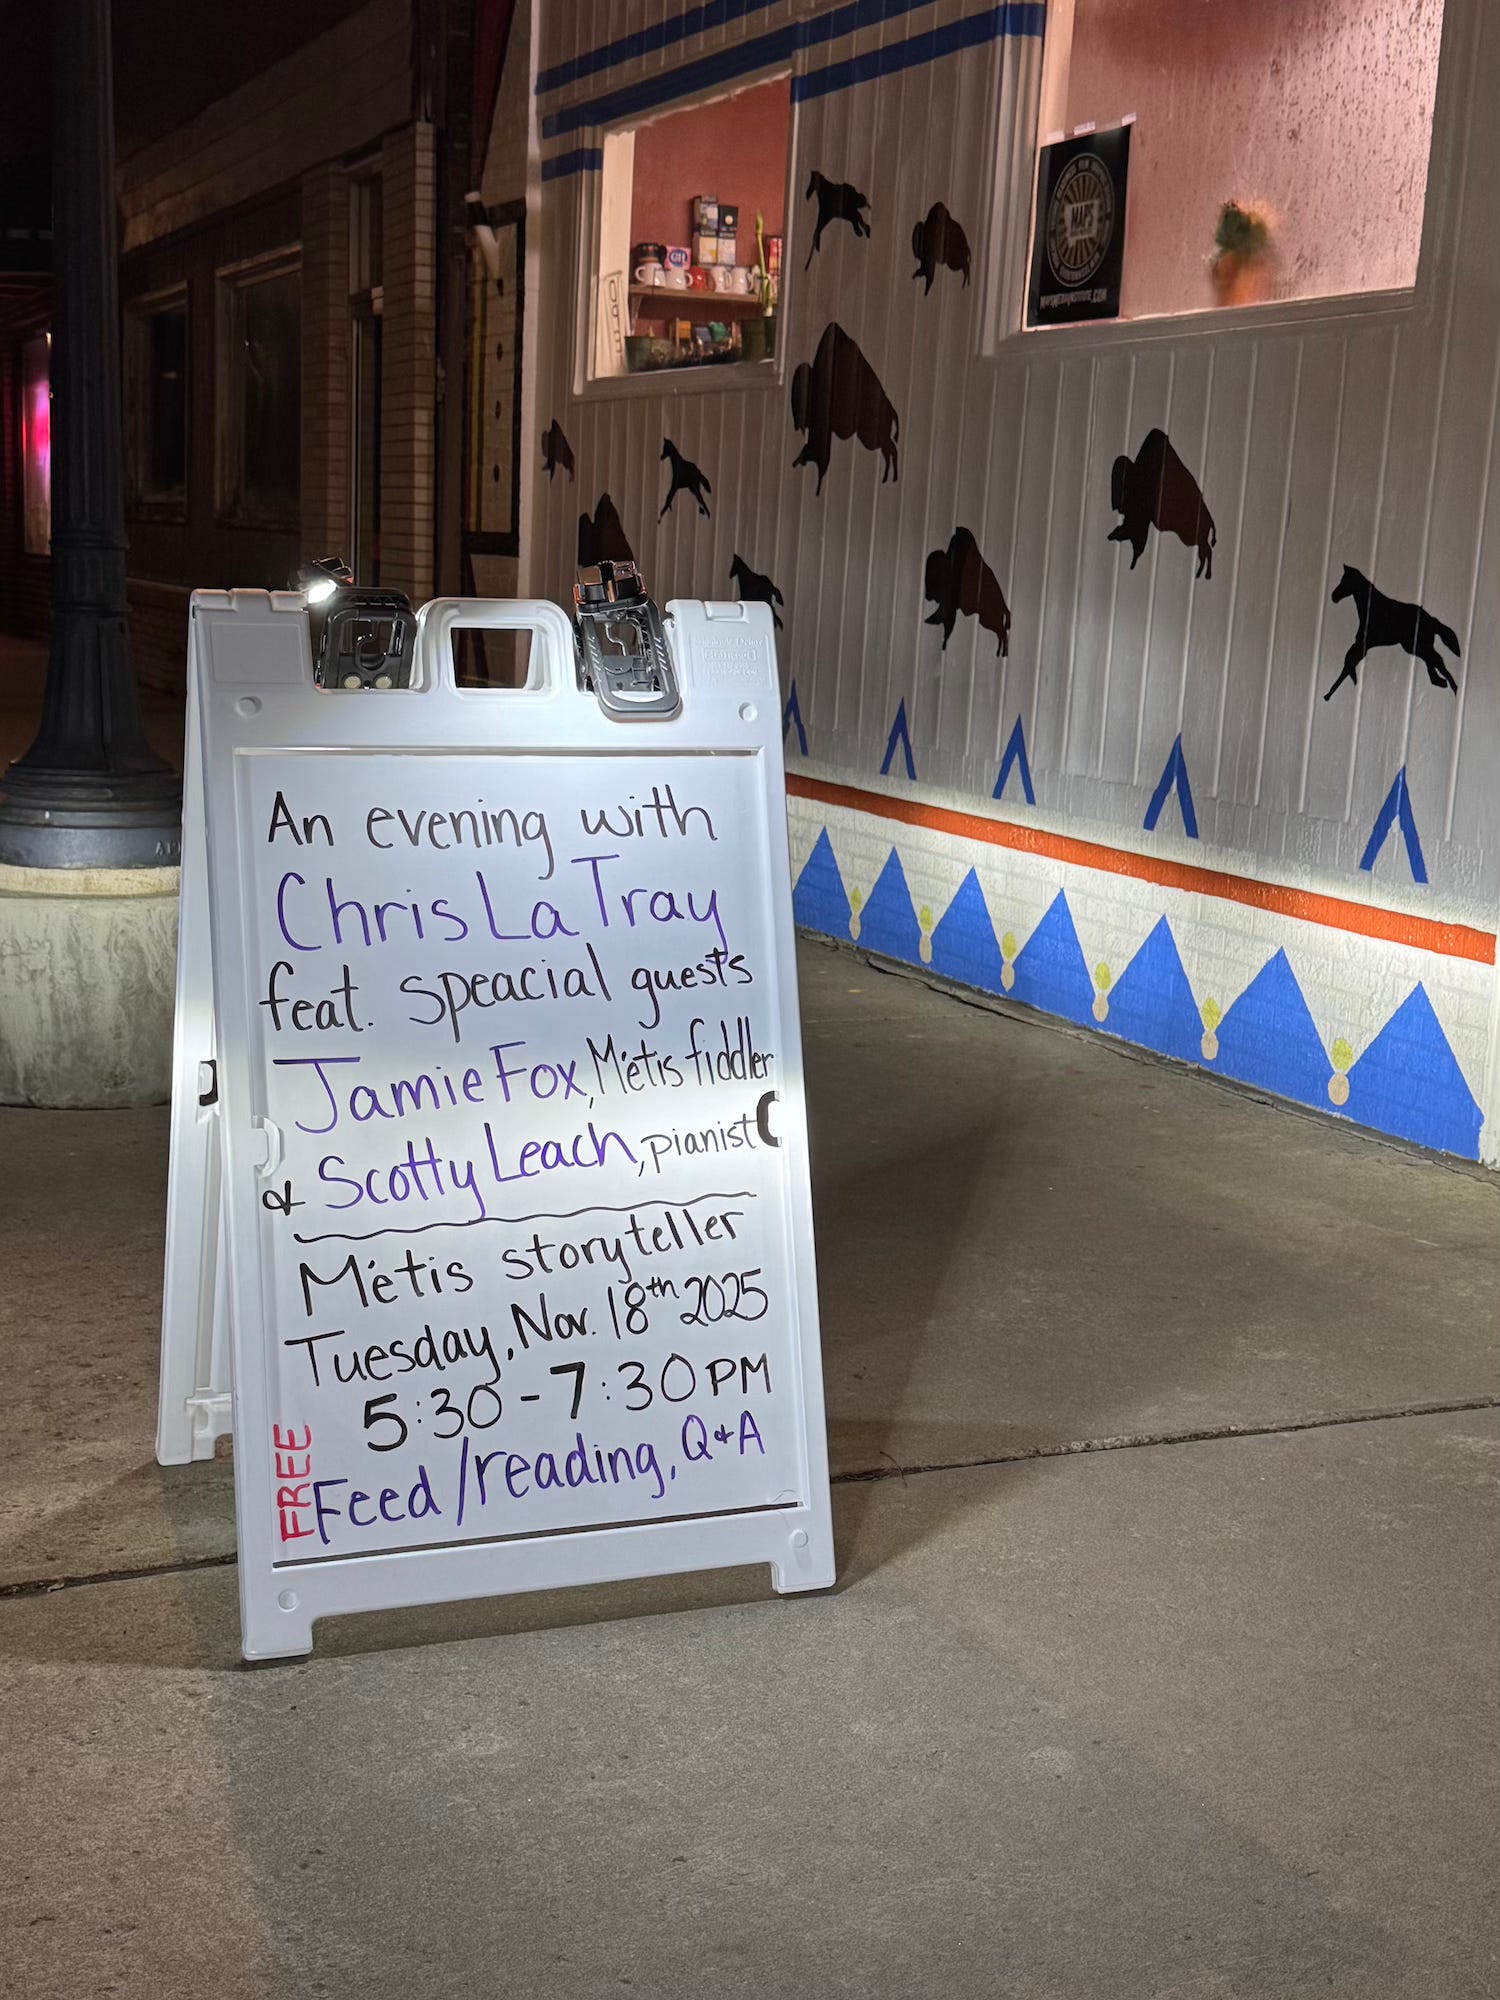 MAPS
MAPSMEDIAINSTITUTE.COM
An evening with
Chris La Tray
feat. speacial guests
Jamie Fox, Métis fiddler
& Scotty Leach, pianist
Métis storyteller
Tuesday, Nov. 18th 2025
5:30-7:30 PM
FREE
Feed/reading, Q&A